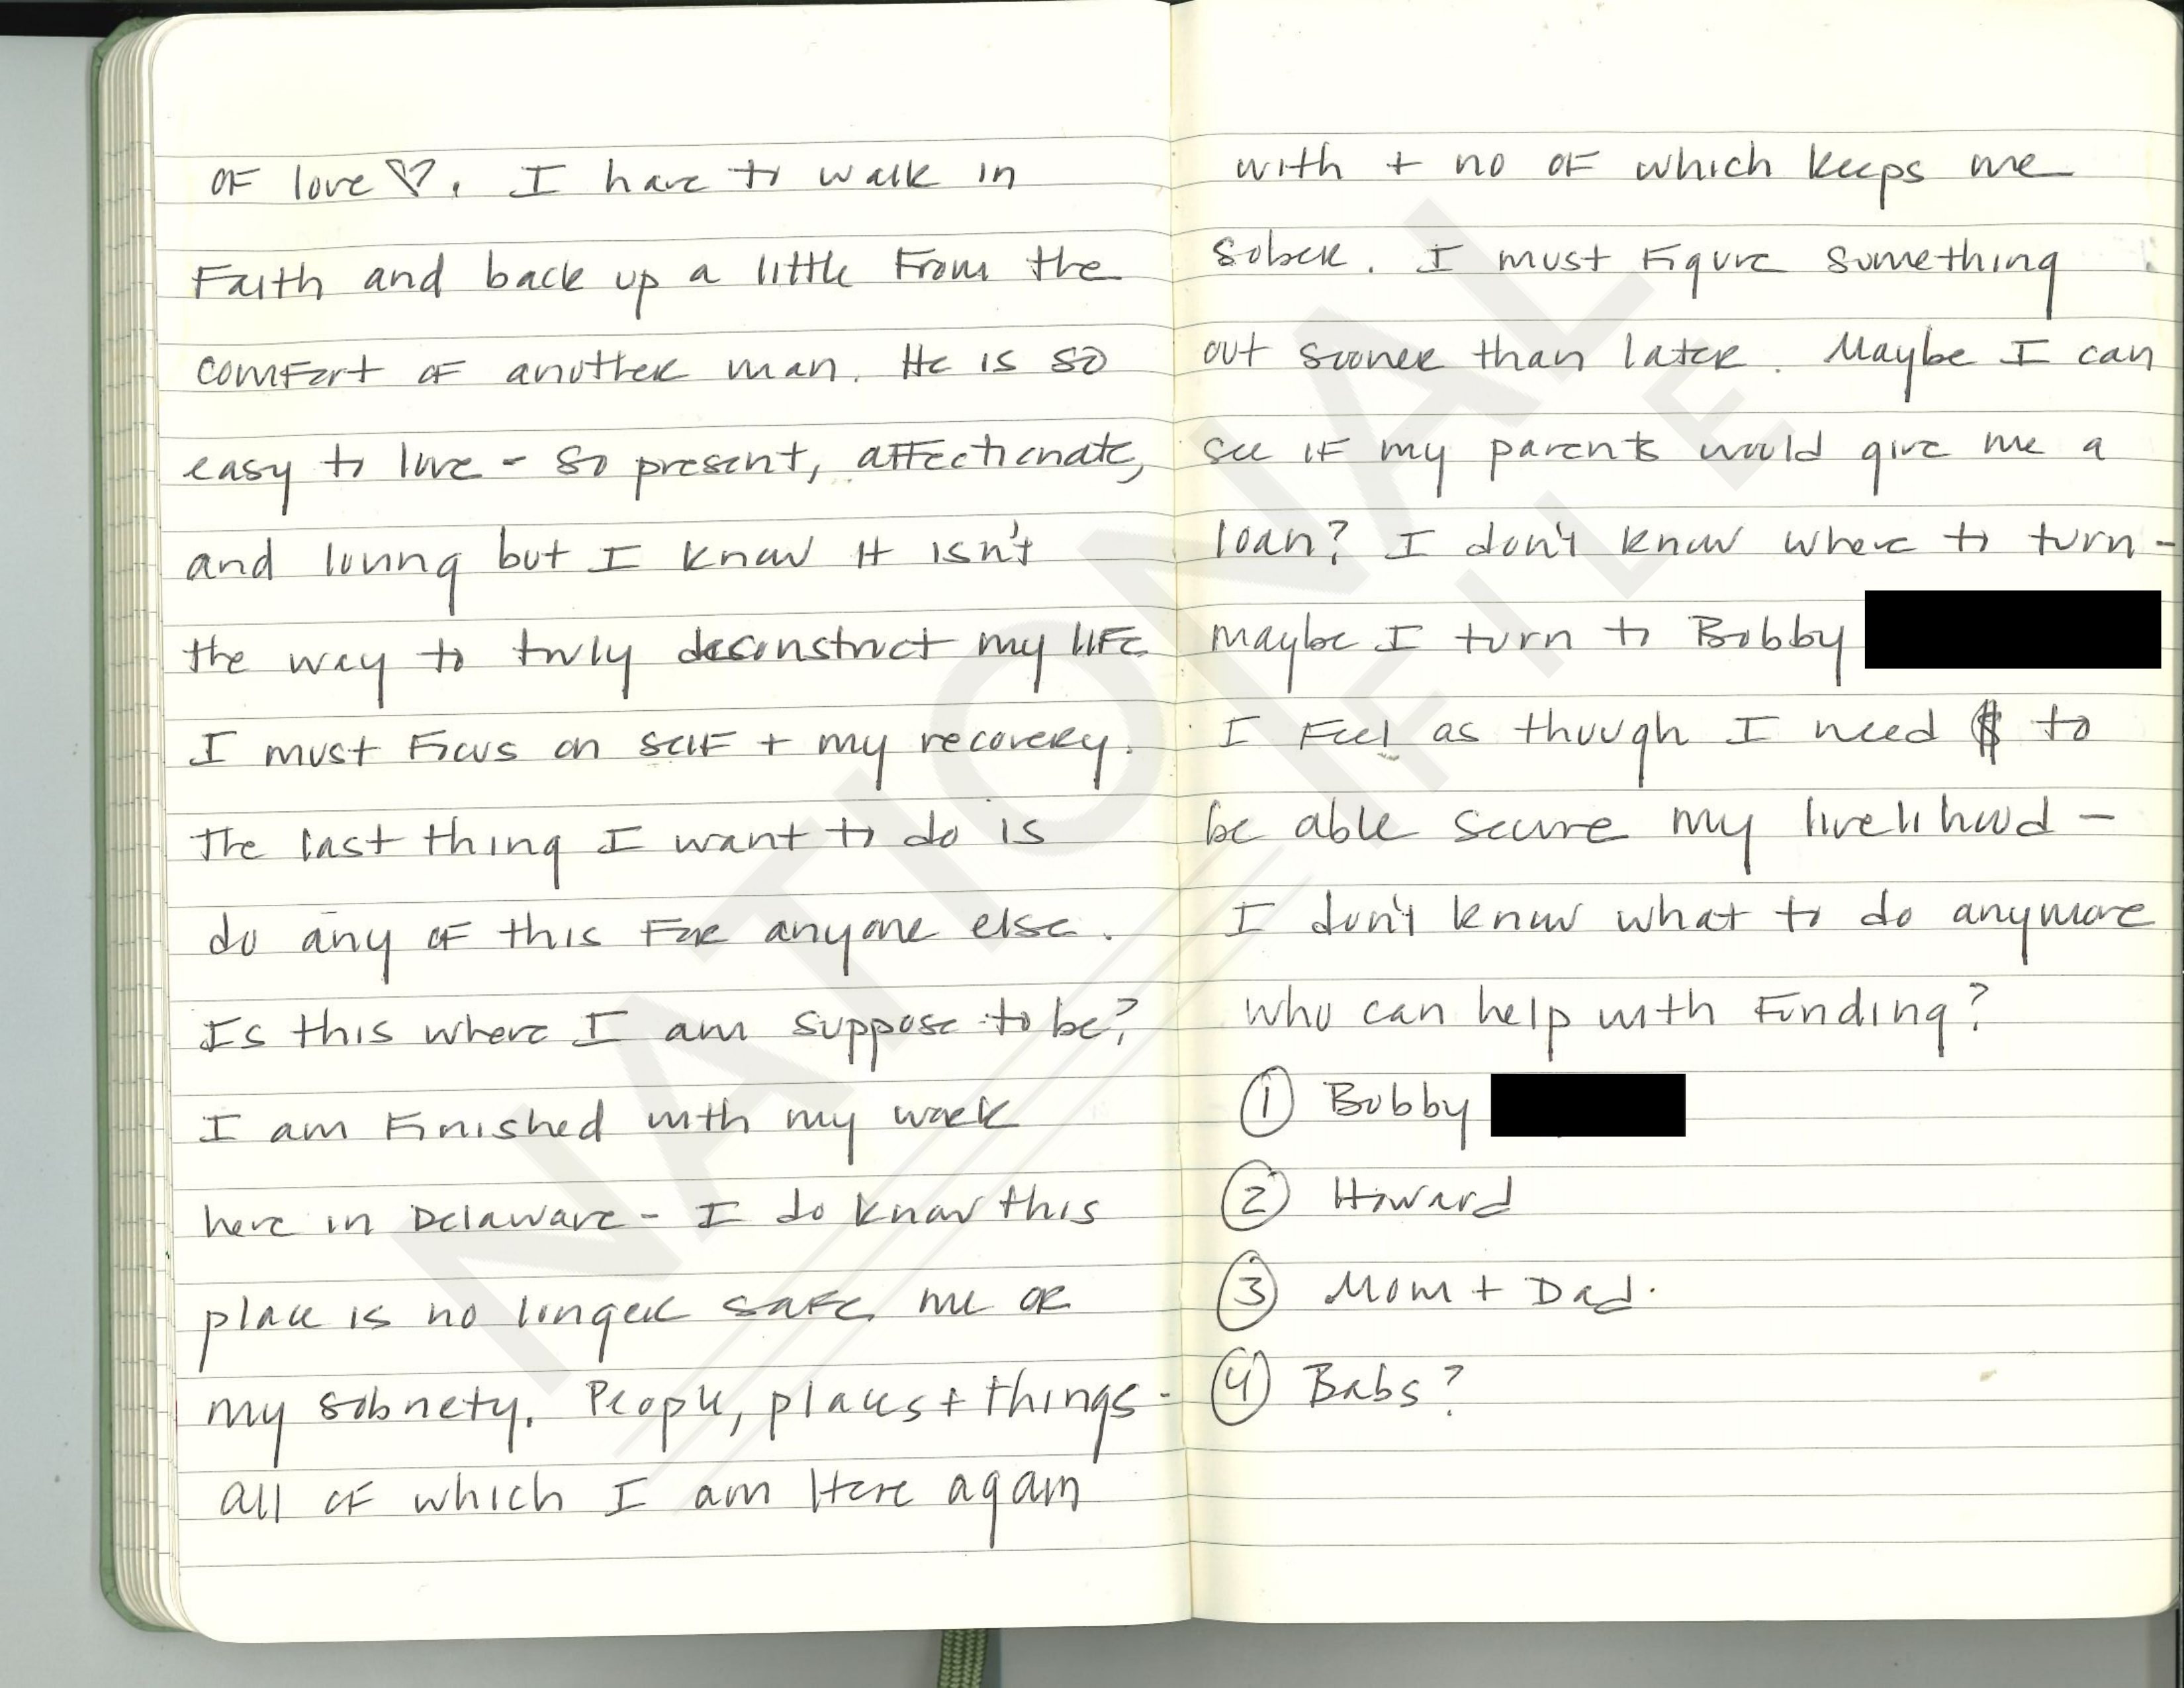 OF love ♡. I have to walk in
Faith and back up a little From the
comfort OF another man. He is so
easy to love - so present, affectionate,
and loving but I know it isn't
the way to truly deconstruct my life
I must Focus on self + my recovery.
The last thing I want to do is
do any of this For anyone else.
Is this where I am suppose to be?
I am Finished with my work
here in Delaware - I do know this
place is no longer safe me or
my sobriety. People, places + things -
all of which I am Here again
with + no of which keeps me
sober. I must Figure something
out sooner than later. Maybe I can
see if my parents would give me a
loan? I don't know where to turn -
maybe I turn to Bobby
I Feel as though I need $ to
be able secure my livelihood -
I don't know what to do anymore
Who can help with Funding?
① Bobby
② Howard
③ Mom + Dad.
④ Babs?
NATIONAL
FILE